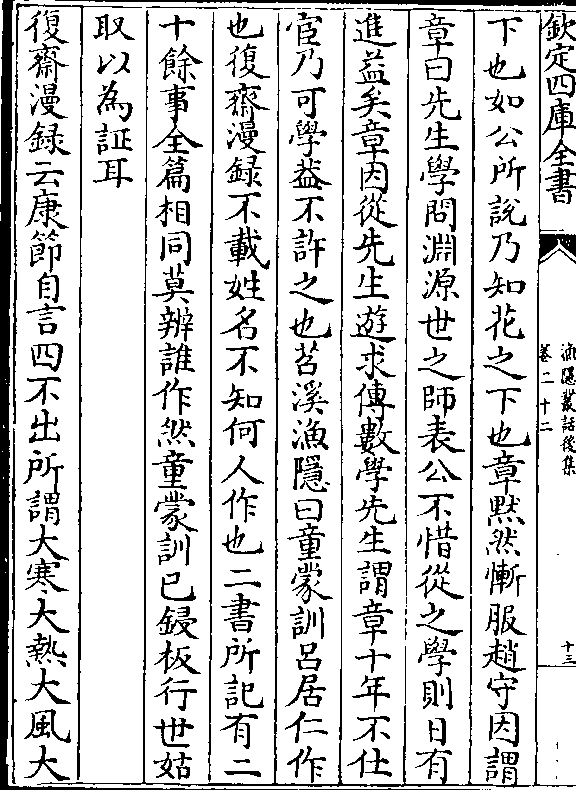 欽定四庫全書
漁隱叢話後集
卷二十二
十三
下也如公所說乃知花之下也章默然慚服趙守因謂
章曰先生學問淵源世之師表公不惜從之學則日有
進益矣章因從先生遊求傳數學先生謂章十年不仕
宦乃可學益不許之也苕溪漁隱曰童蒙訓吕居仁作
也復齋漫録不載姓名不知何人作也二書所記有二
十餘事全篇相同莫辨誰作然童蒙訓已鋟板行世姑
取以為証耳
復齋漫録云康節自言四不出所謂大寒大熱大風大